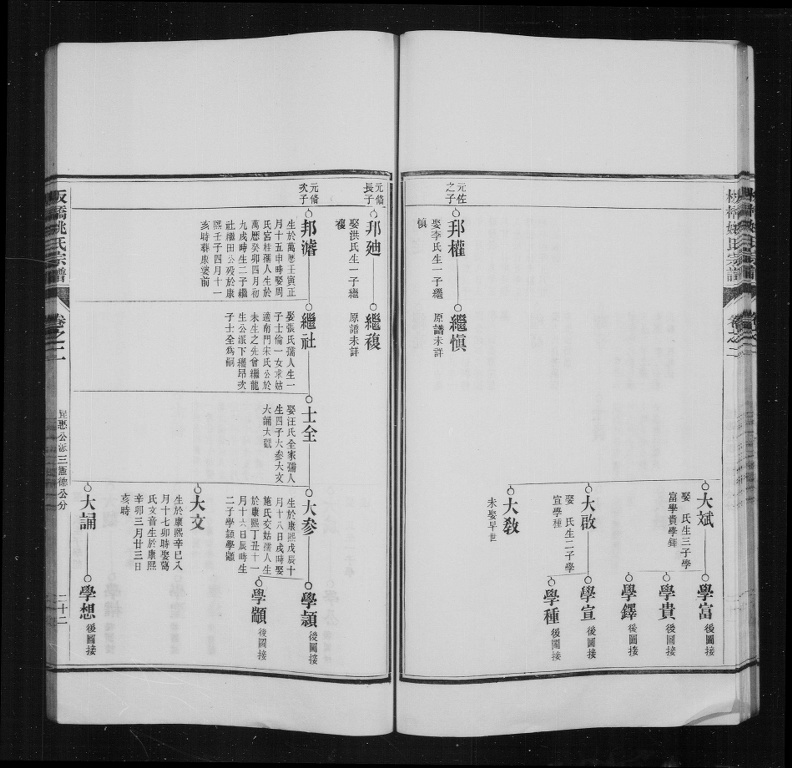 元佐
之子
邦權
娶李氏生一子繼
慎
繼慎
原譜未詳
大斌
娶 氏生三子學
富學貴學鐸
學富
後圖接
學貴
後圖接
學鐸
後圖接
大啟
娶 氏生二子學
宣學種
學宣
後圖接
學種
後圖接
大敎
未娶早世
元脩
長子
邦廸
娶洪氏生一子繼
複
繼複
原譜未詳
元脩
次子
生於萬歷壬寅正
月十五申時娶周
氏宮桂孺人生於
萬歷癸卯四月初
九戌時生二子繼
社繼田公歿於康
熙壬子四月十一
亥時葬
繼社
娶張氏孺人生一
子士倫一女求姑
適南門宋氏公於
未生之先會繼龍
生公派下
子士全為嗣
士全
娶汪氏全家孺人
生四子大參大文
大誦大
大參
生於康熙戊辰十
月十八日戌時娶
施氏交姑孺人生
於康熙丁丑十一
月十六日辰時生
二子學頴學顒
學頴
後圖接
學顒
後圖接
大文
生於康熙辛巳八
月十七卯時娶
氏文音生於康熙
辛卯三月廿三日
亥時
大誦
學想
後圖接
板橋姚氏宗譜
卷之二
三憲德公分
二十二